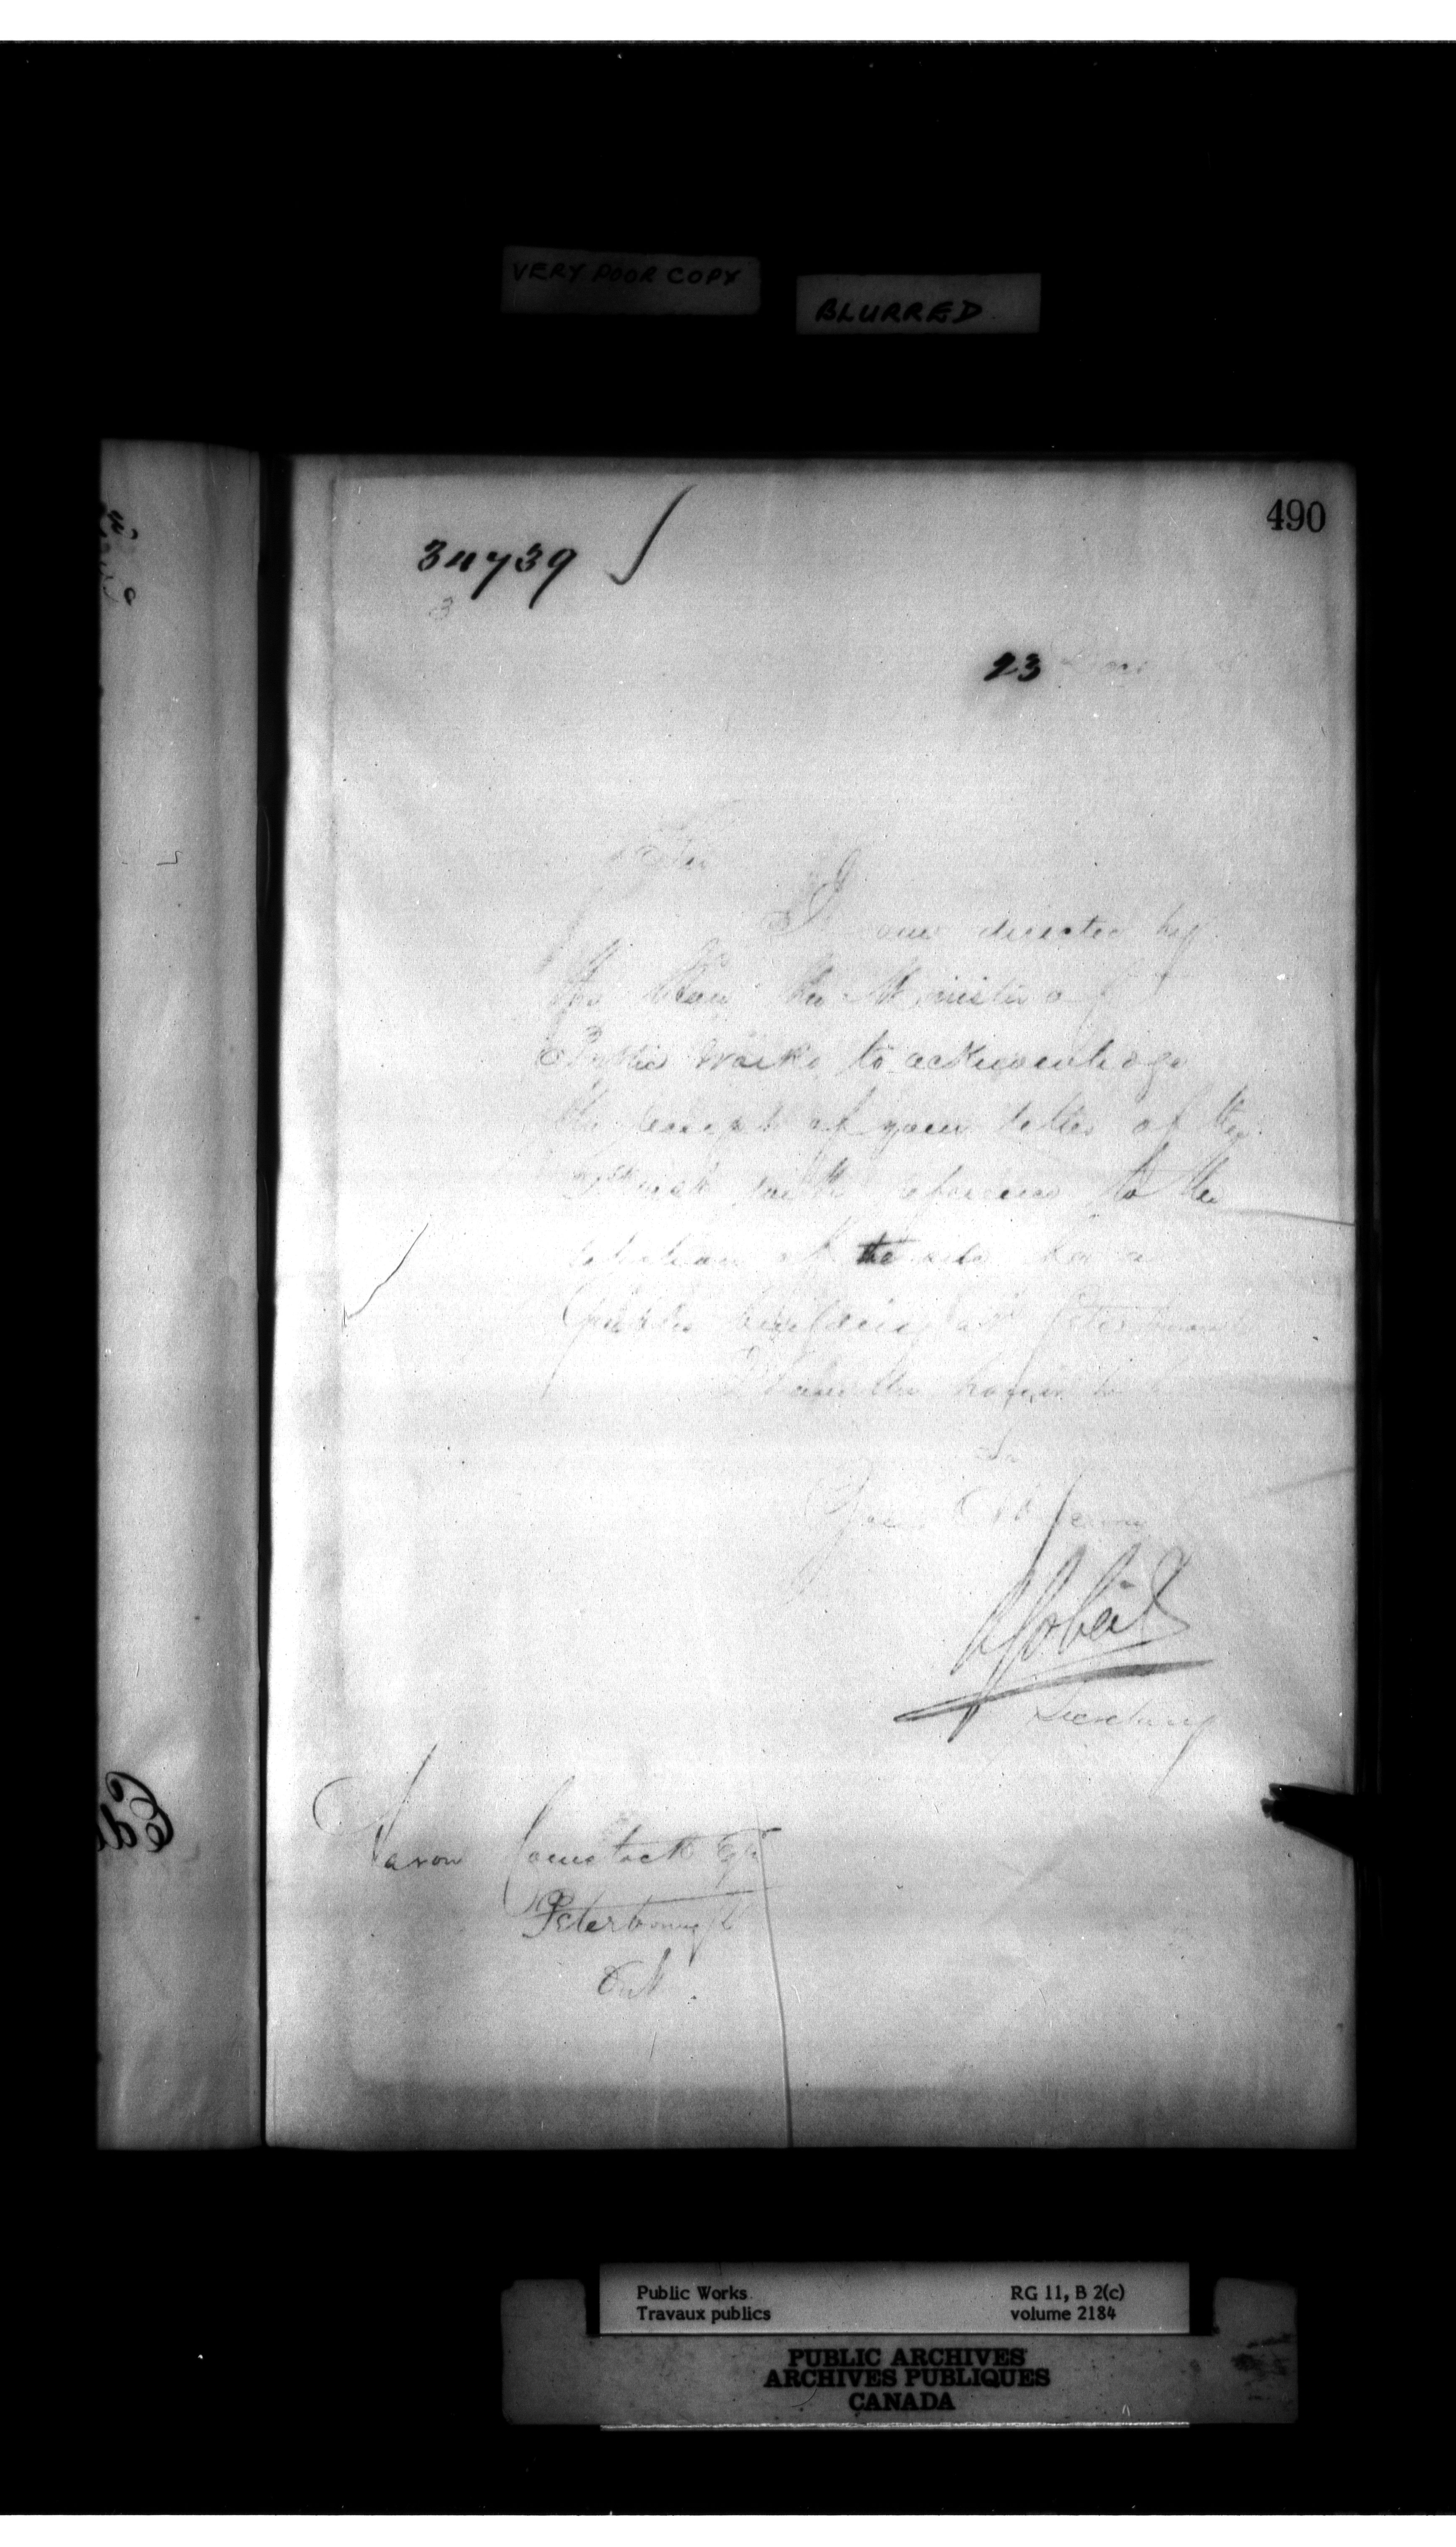 VERY POOR COPY
BLURRED
490
34739
3
23 Dec
Sir
I am directed by
the Hon. the Minister of
Public Works to acknowledge
the receipt of your letter of the
with reference to the
selection of the site for a
public building at Peterborough
I have the honor to be
Sir
Your Obt Serv
Secretary
Aaron Comstock Esq
Peterborough
Ont.
Public Works
Travaux publics
RG 11, B 2(c)
volume 2184
PUBLIC ARCHIVES
ARCHIVES PUBLIQUES
CANADA